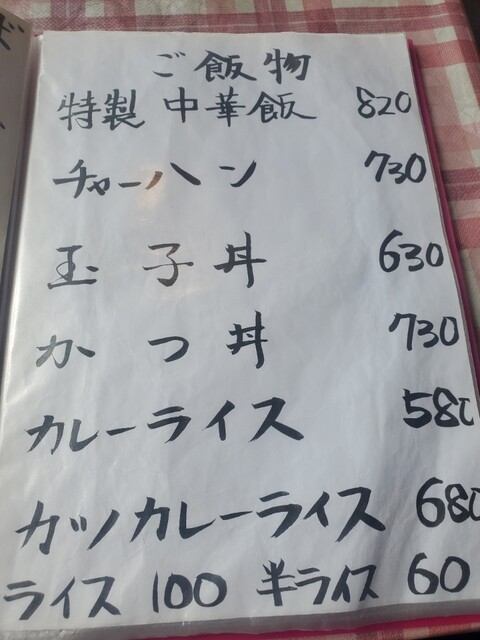 ご飯物
特製 中華飯 820
チャーハン 730
玉子丼 630
かつ丼 730
カレーライス 580
カツカレーライス 680
ライス 100 半ライス 60